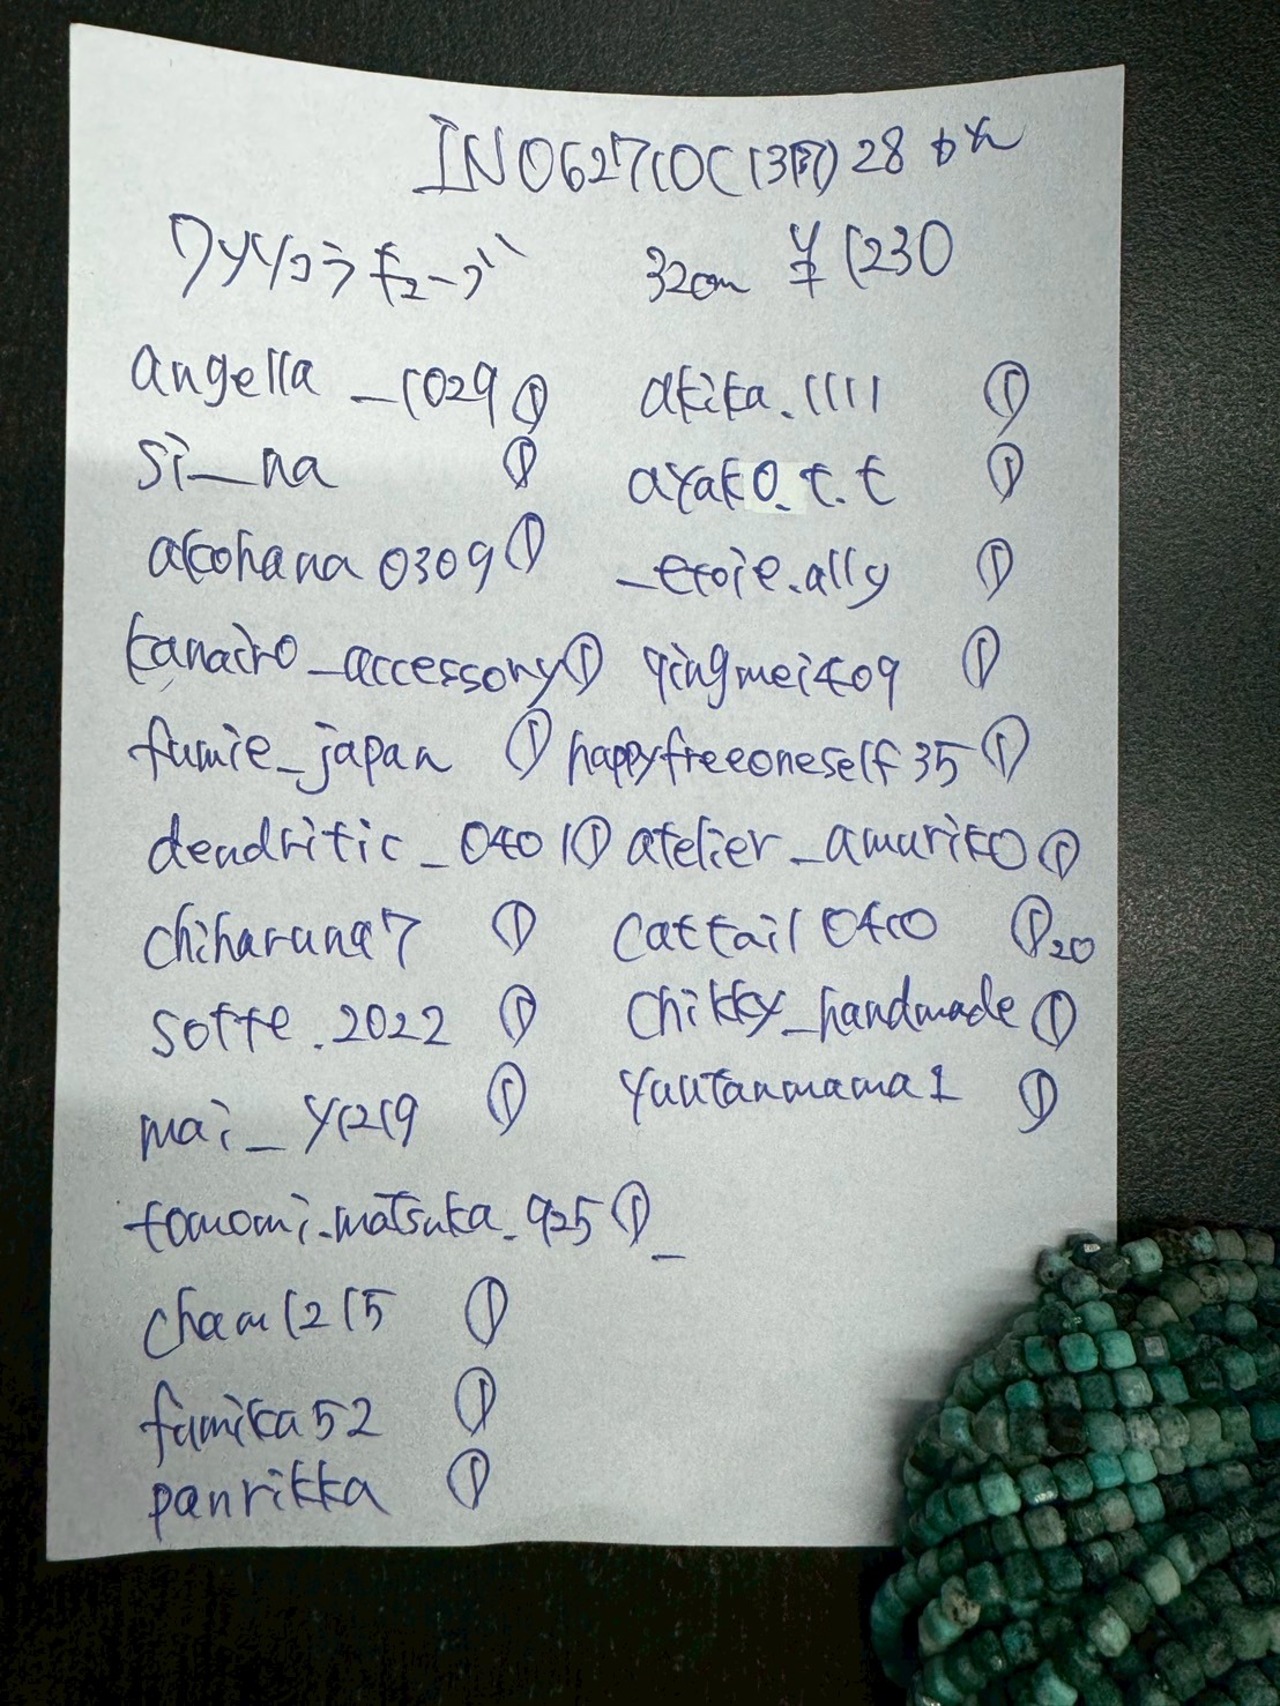 IN062710C(137) 28
クリソコラキューブ 32cm ¥1230
angella_1029 ① akika.1111 ①
si__na ① ayako.t.t ①
akohana0309 ① _etoile.ally ①
kanairo_accessory ① qingmei409 ①
fumie_japan ① happyfreeoneself35 ①
dendritic_0401 ① atelier_amuriko ①
chiharuna7 ① cattail0410 ① 20
sotte.2022 ① chikky_handmade ①
mai_y1219 ① yuutanmama1 ①
tomomi.matsuka.925 ①
cham1215 ①
fumika52 ①
panrikka ①